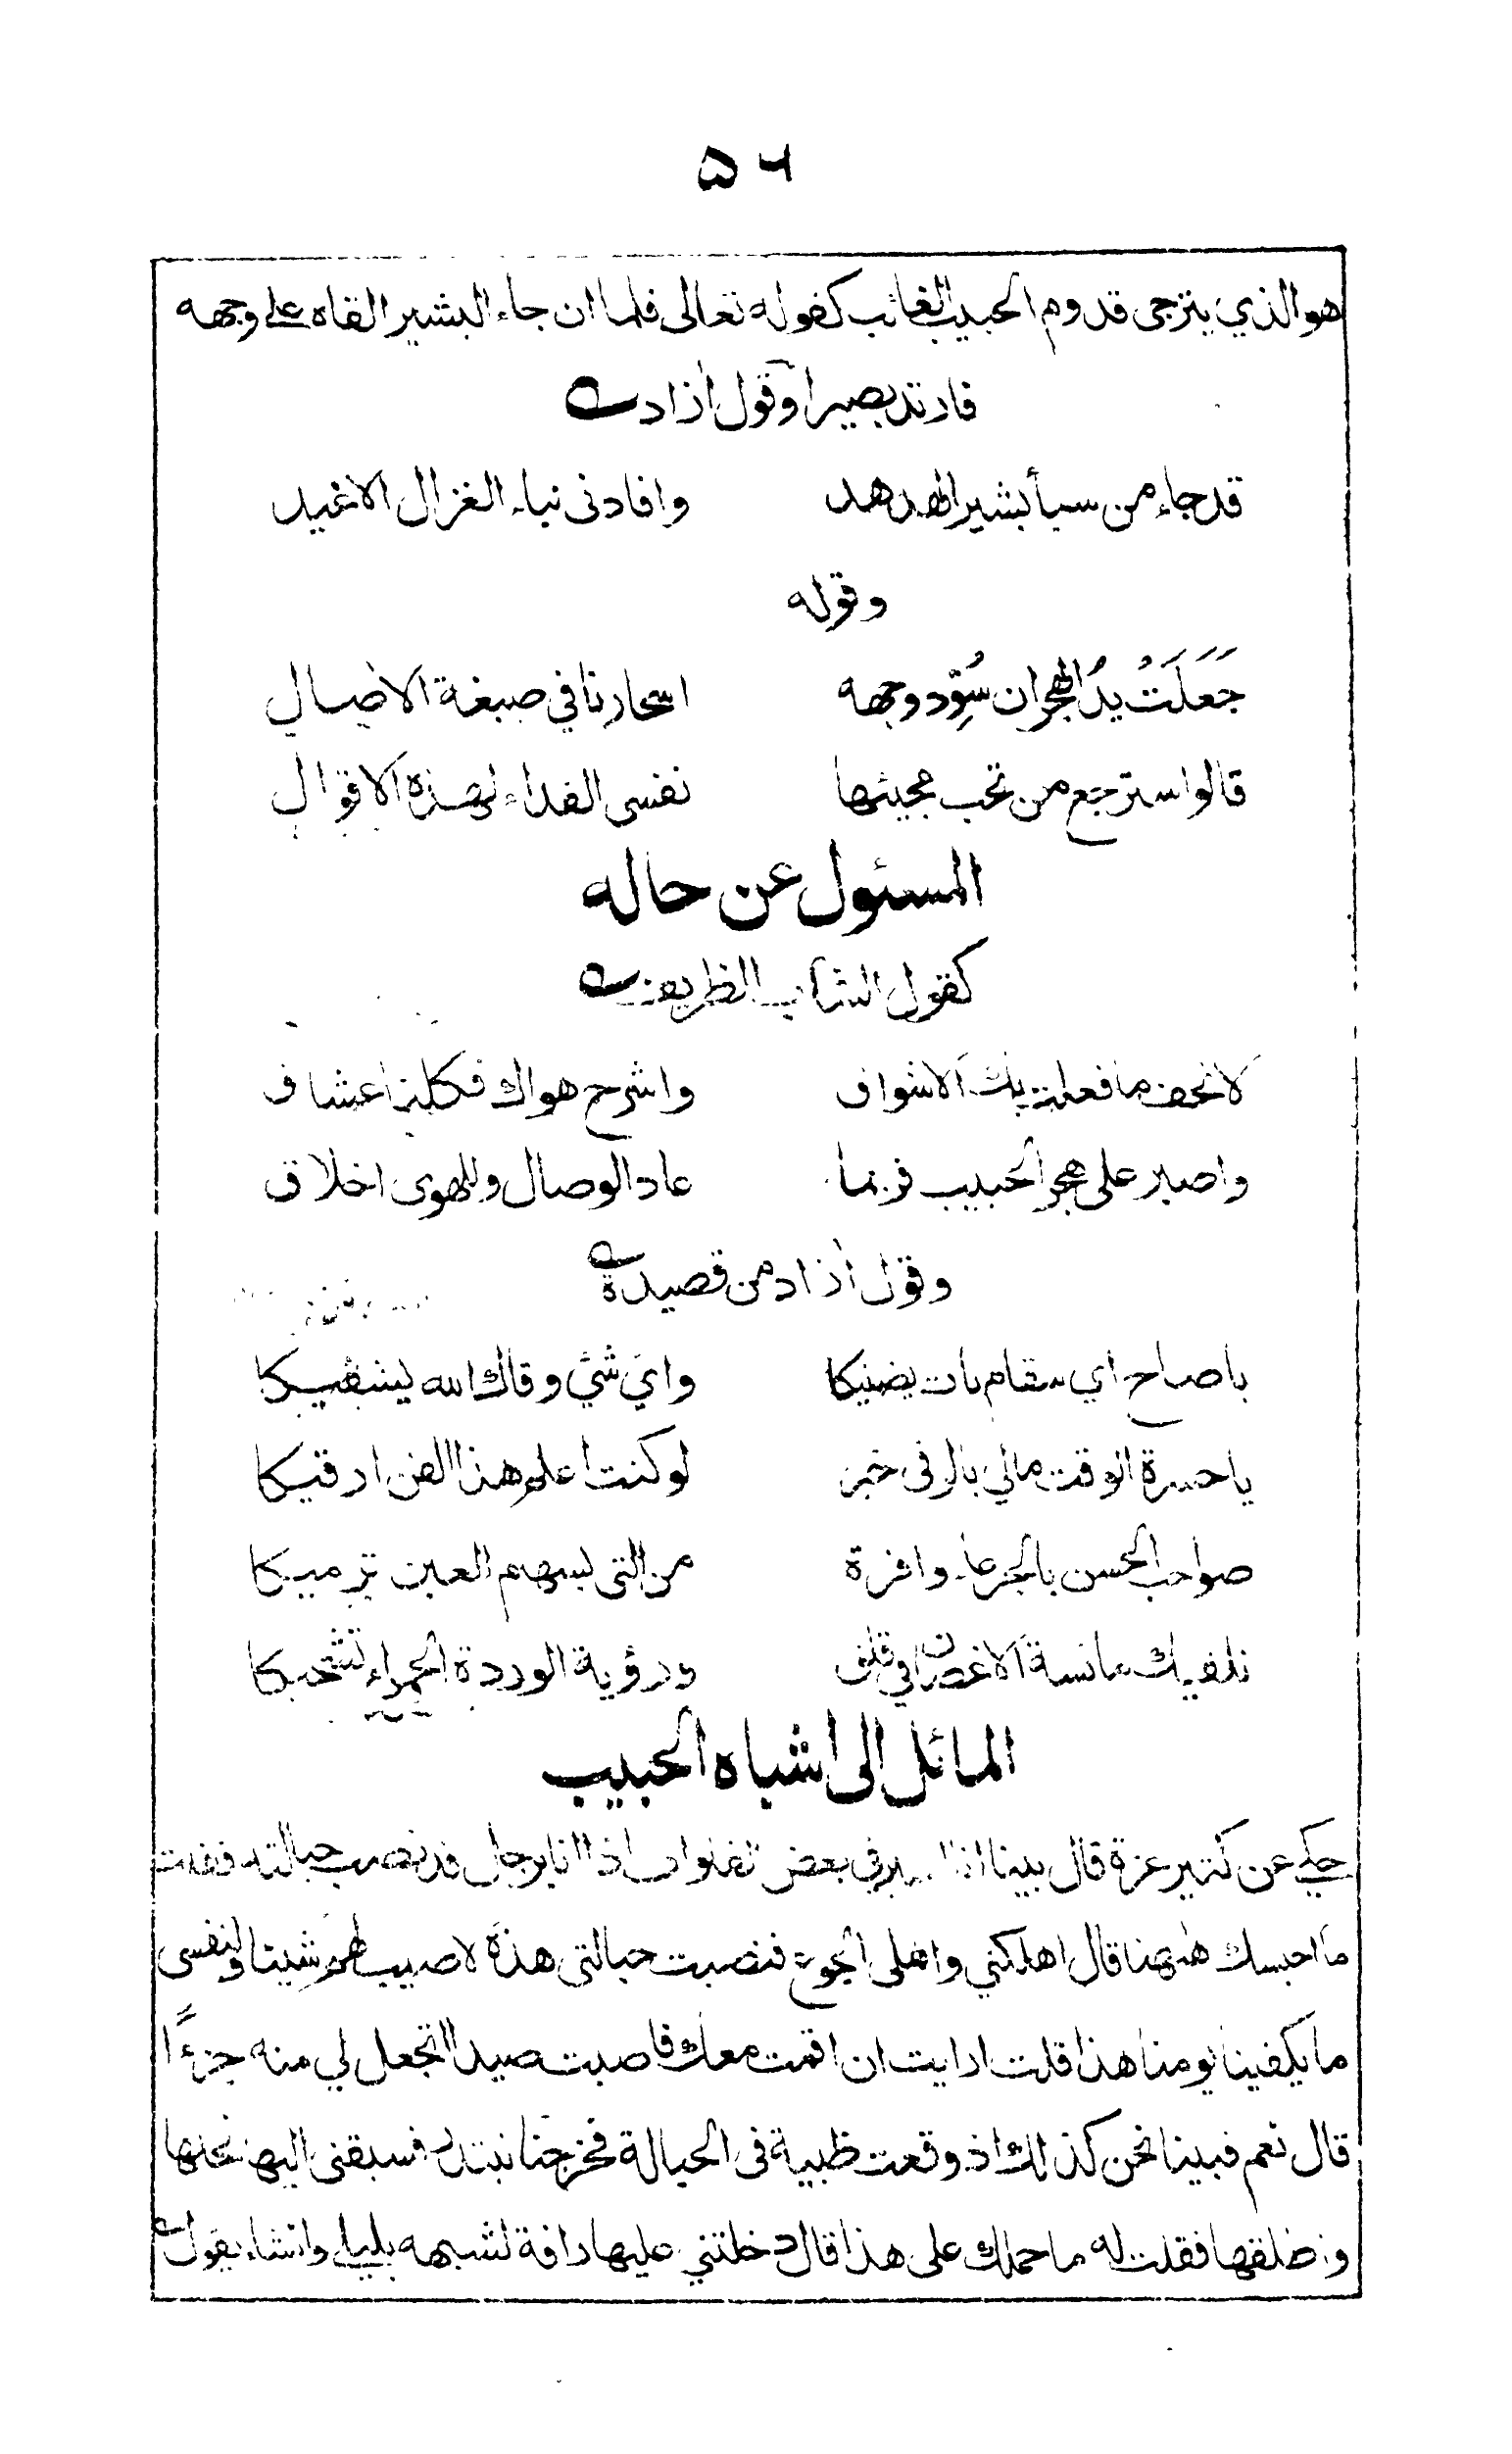 ٥٦
هو الذي يترجى قدوم الحبيب الغائب كقوله تعالى فلما ان جاء البشير القاه على وجهه
فارتد بصيرا وقول آزاد
قد جاء من سبأ بشير الهدهد وافادنى نباء الغزال الاغيد
وقوله
جَعَلَتْ يدُ الهجران سُوِّد وجهه اسحارنا في صبغة الاصال
قالوا سترجع من تحب مجيئها نفسى الفداء لهذه الاقوال
المسئول عن حاله
كقول الشاب الظريف
لا تخف ما فعلت بك الاشواق واشرح هواك فكلنا عشاق
واصبر على هجر الحبيب فربما عاد الوصال وللهوى اخلاق
وقول آزاد من قصيدة
يا صاح اي سقام بات يضنيكا واي شئ وقاك الله يشفيكا
يا حسرة الوقت مالي بال فى خبر لو كنت اعلم هذا الفن ارقيكا
صواحب الحسن بالجرعاء وافرة من التى بسهم العين ترميكا
نلفيك مائسة الاغصان في قلق ورؤية الوردة الحمراء تشجيكا
المائل الى اشباه الحبيب
حكي عن كثير عزة قال بينا انا اسير في بعض الفلوات اذا انا برجل قد نصب حبالته فقلت
ما احبسك ههنا قال اهلكني واهلى الجوع فنصبت حبالتى هذه لاصيب لهم شيئا ولنفسى
ما يكفينا يومنا هذا قلت ارايت ان اقمت معك فاصبت صيدا اتجعل لي منه جزءًا
قال نعم فبينا نحن كذلك اذ وقعت ظبية فى الحبالة فخرجنا نبتدر فسبقنى اليها فحلها
واطلقها فقلت له ما حملك على هذا قال دخلتني عليها رافة لشبهه بليلى وانشاء يقول